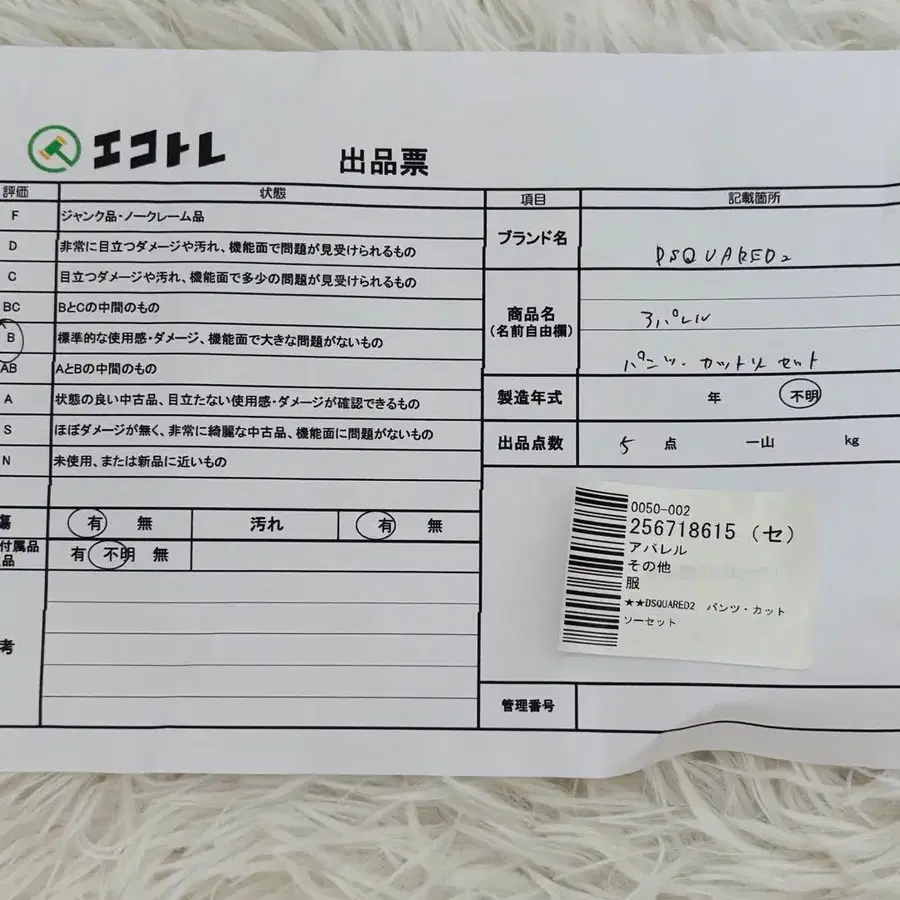 エコトレ
出品票
評価 状態
F ジャンク品・ノークレーム品
D 非常に目立つダメージや汚れ、機能面で問題が見受けられるもの
C 目立つダメージや汚れ、機能面で多少の問題が見受けられるもの
BC BとCの中間のもの
B 標準的な使用感・ダメージ、機能面で大きな問題がないもの
AB AとBの中間のもの
A 状態の良い中古品、目立たない使用感・ダメージが確認できるもの
S ほぼダメージが無く、非常に綺麗な中古品、機能面に問題がないもの
N 未使用、または新品に近いもの
傷 有 無 汚れ 有 無
付属品 有 不明 無
品
考
項目 記載箇所
ブランド名 DSQUARED2
商品名
(名前自由欄)
アパレル
パンツ・カットソーセット
製造年式 年 不明
出品点数 5 点 一山 kg
0050-002
256718615 (セ)
アパレル
その他
服
★★DSQUARED2 パンツ・カット
ソーセット
管理番号